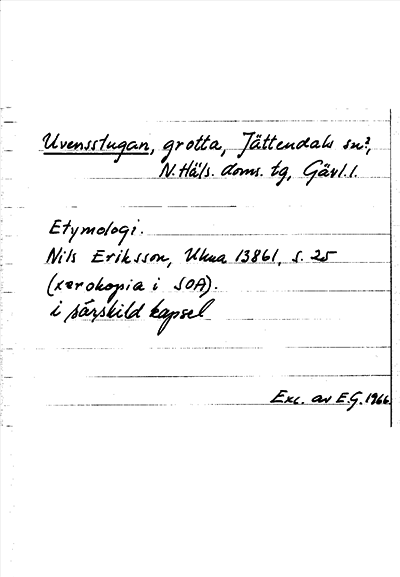 Uvensstugan, grotta, Jättendals sn?,
N. Häls. doms. tg, Gävl. l.
Etymologi.
Nils Eriksson, Ukua 13861, s. 25
(xerokopia i SOA).
i särskild kapsel
Exc. av E.G. 1966.